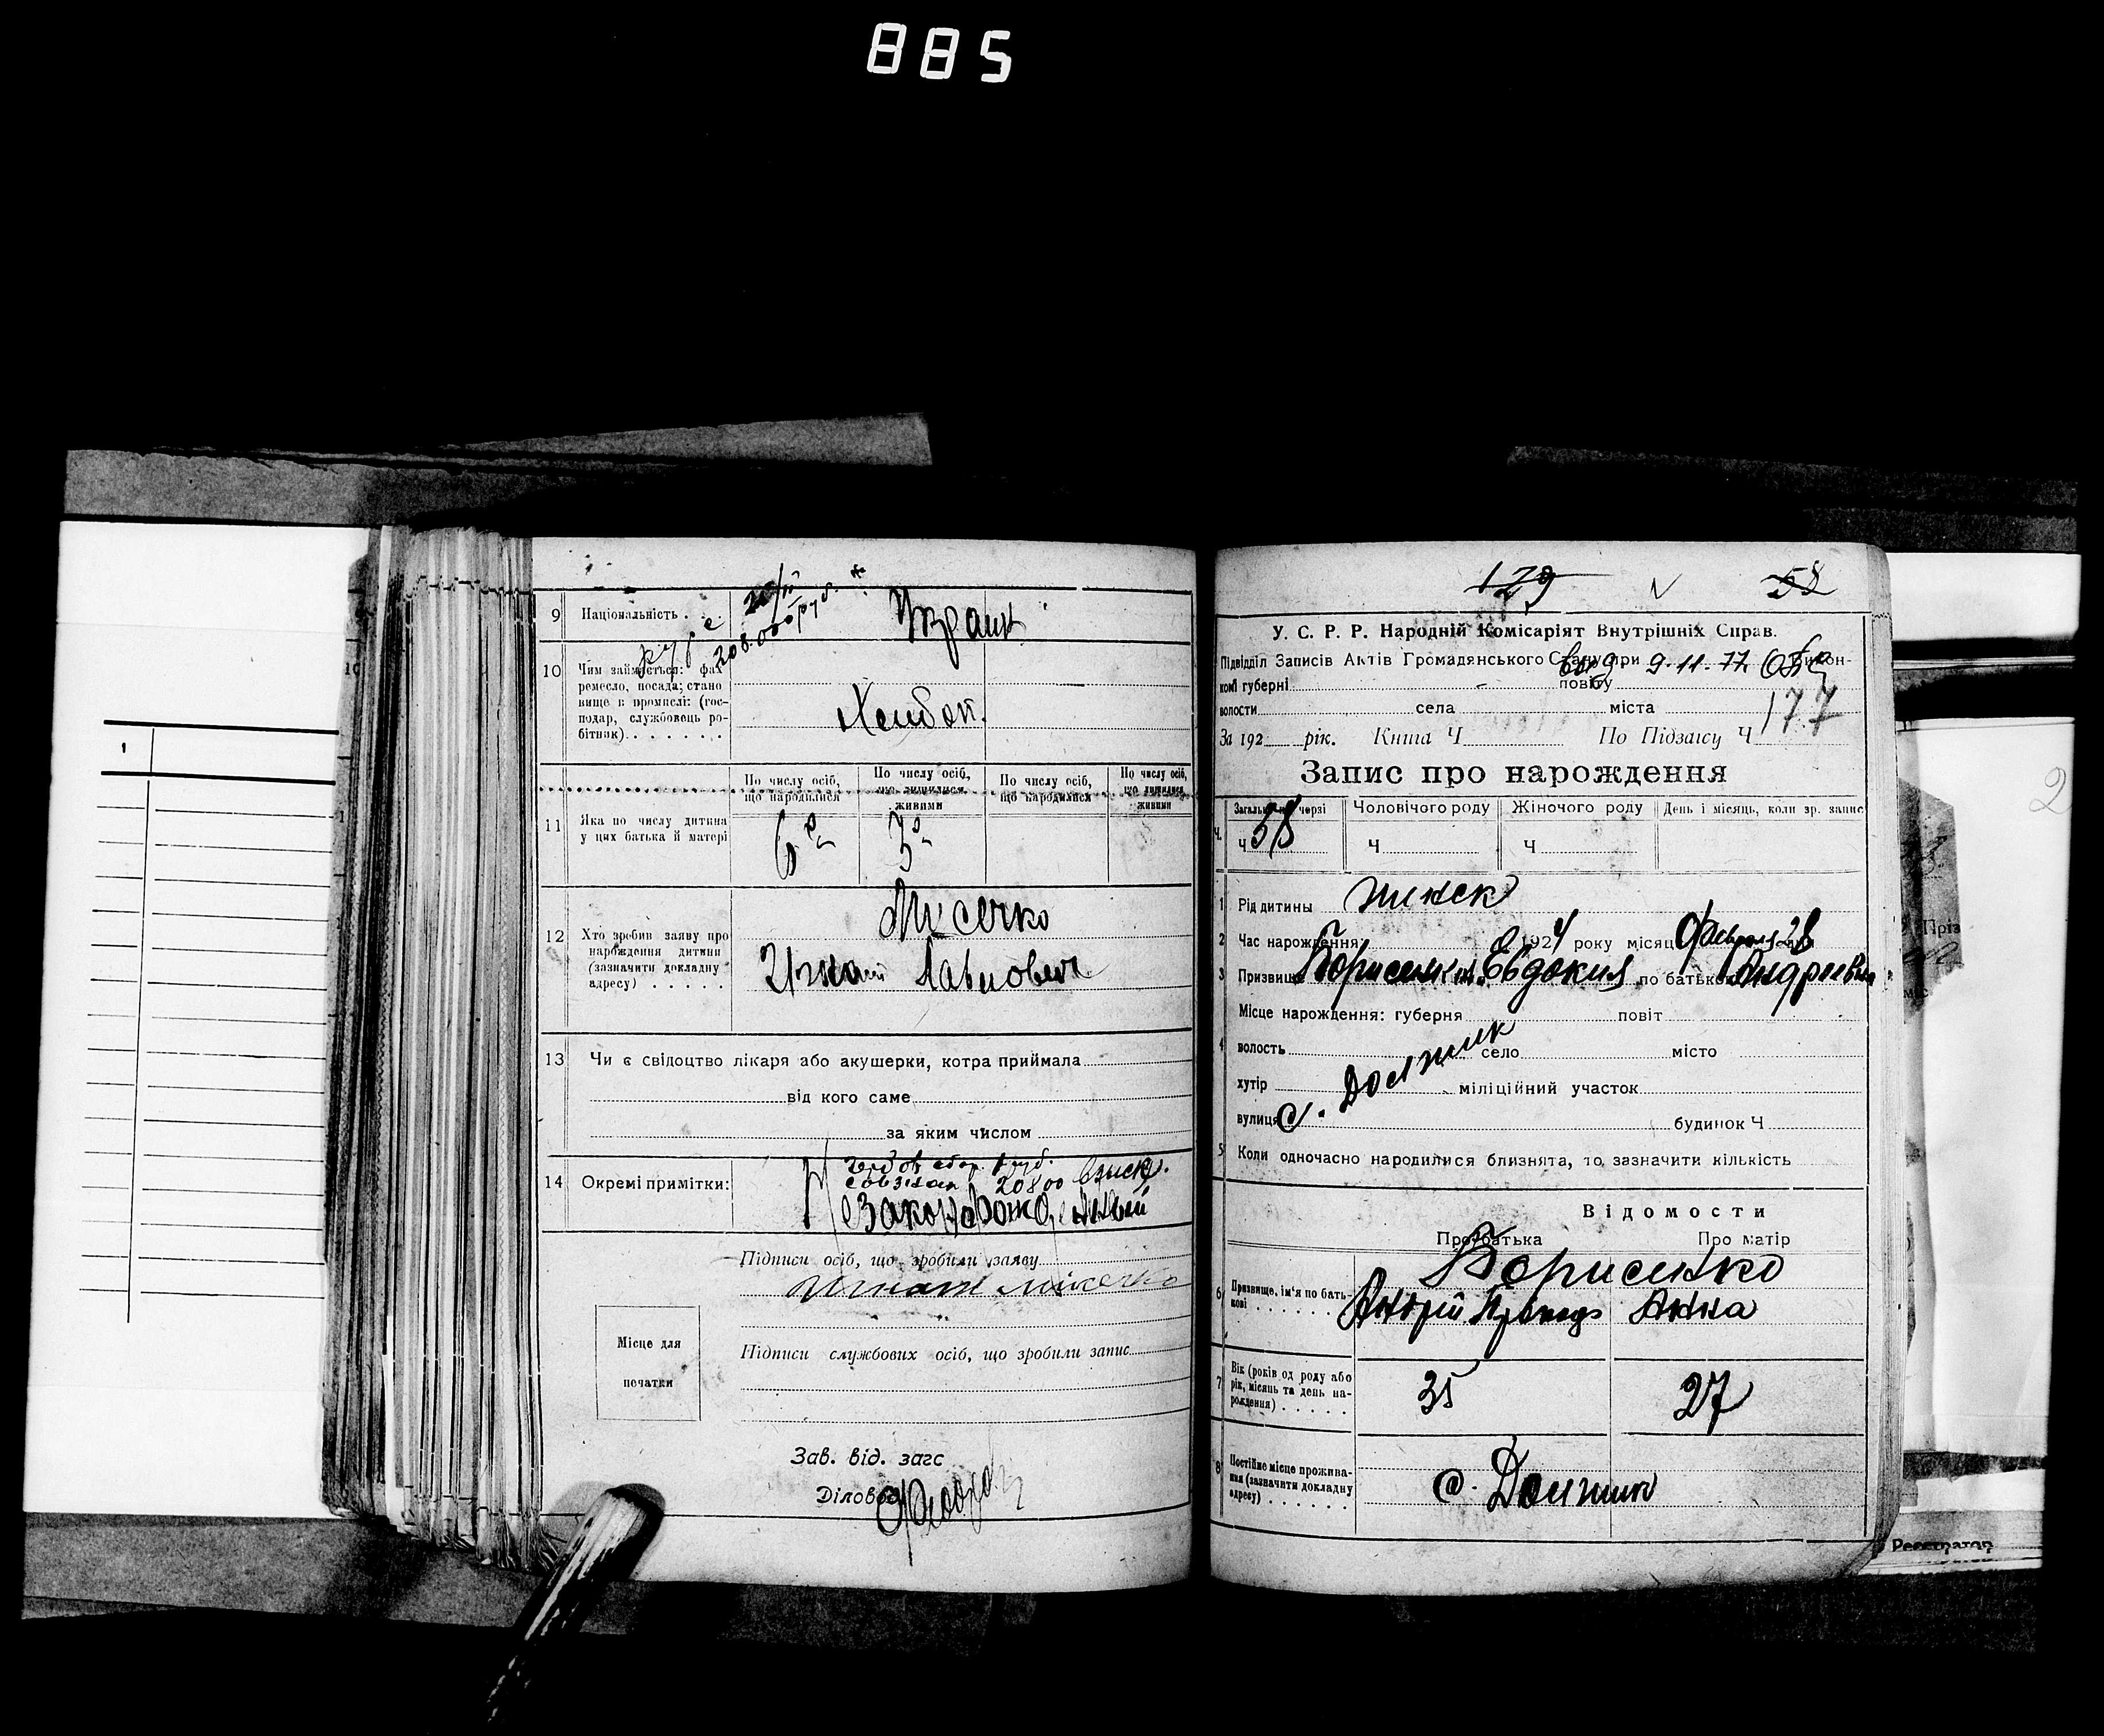 885
9 Національність . .
Украин
10 Чим займається: фах
ремесло, посада; стано
вище в промислі: (гос-
подар, службовець ро-
бітник). . . . . . .
Хлибоп.
По числу осіб, що народилися
По числу осіб, що лишилися живими
По числу осіб, що народилися
По числу осіб, що лишилися живими
11 Яка по числу дитина
у цих батька й матері
6 3
12 Хто зробив заяву про
народження дитини
(зазначити докладну
адресу) . . . . .
Мисечко
Игнат
13 Чи є свідоцтво лікаря або акушерки, котра приймала
від кого саме
за яким числом
14 Окремі примітки:
20800
Підписи осіб, що зробили заяву
Игнат Мисечко
Місце для
печатки
Підписи службових осіб, що зробили запис
Зав. від. загс
Діловод
129 58
У. С. Р. Р. Народній Комісаріят Внутрішніх Справ.
Підвідділ Записів Актів Громадянського Стану при Викон-
комі губерні повіту
9.11.77
волости села міста
177
За 192 рік. Книга Ч По Підзапису Ч
Запис про нарождення
Загальн. по черзі Чоловічого роду Жіночого роду День і місяць, коли зр. запис
Ч. Ч 58 Ч Ч
1 Рід дитини женск
2 Час нарождення 1924 року місяц Февраля 28
3 Призвище Борисенко Евдокия по батькові Андреевна
Місце нарождення: губерня повіт
4 волость село місто
хутір міліційний участок
вулиця будинок Ч
с. Должик
5 Коли одночасно народилися близнята, то зазначити кількість
Відомости
Про батька Про матір
Борисенко
6 Призвище, ім'я по бать-
кові . . . . . .
Андрій Анна
7 Вік (років од роду або
рік, місяць та день на-
рождення) . . . . .
35 27
8 Постійне місце прожива-
ння (зазначити докладну
адресу) . . . . . .
с. Должик
2
Реєстратор